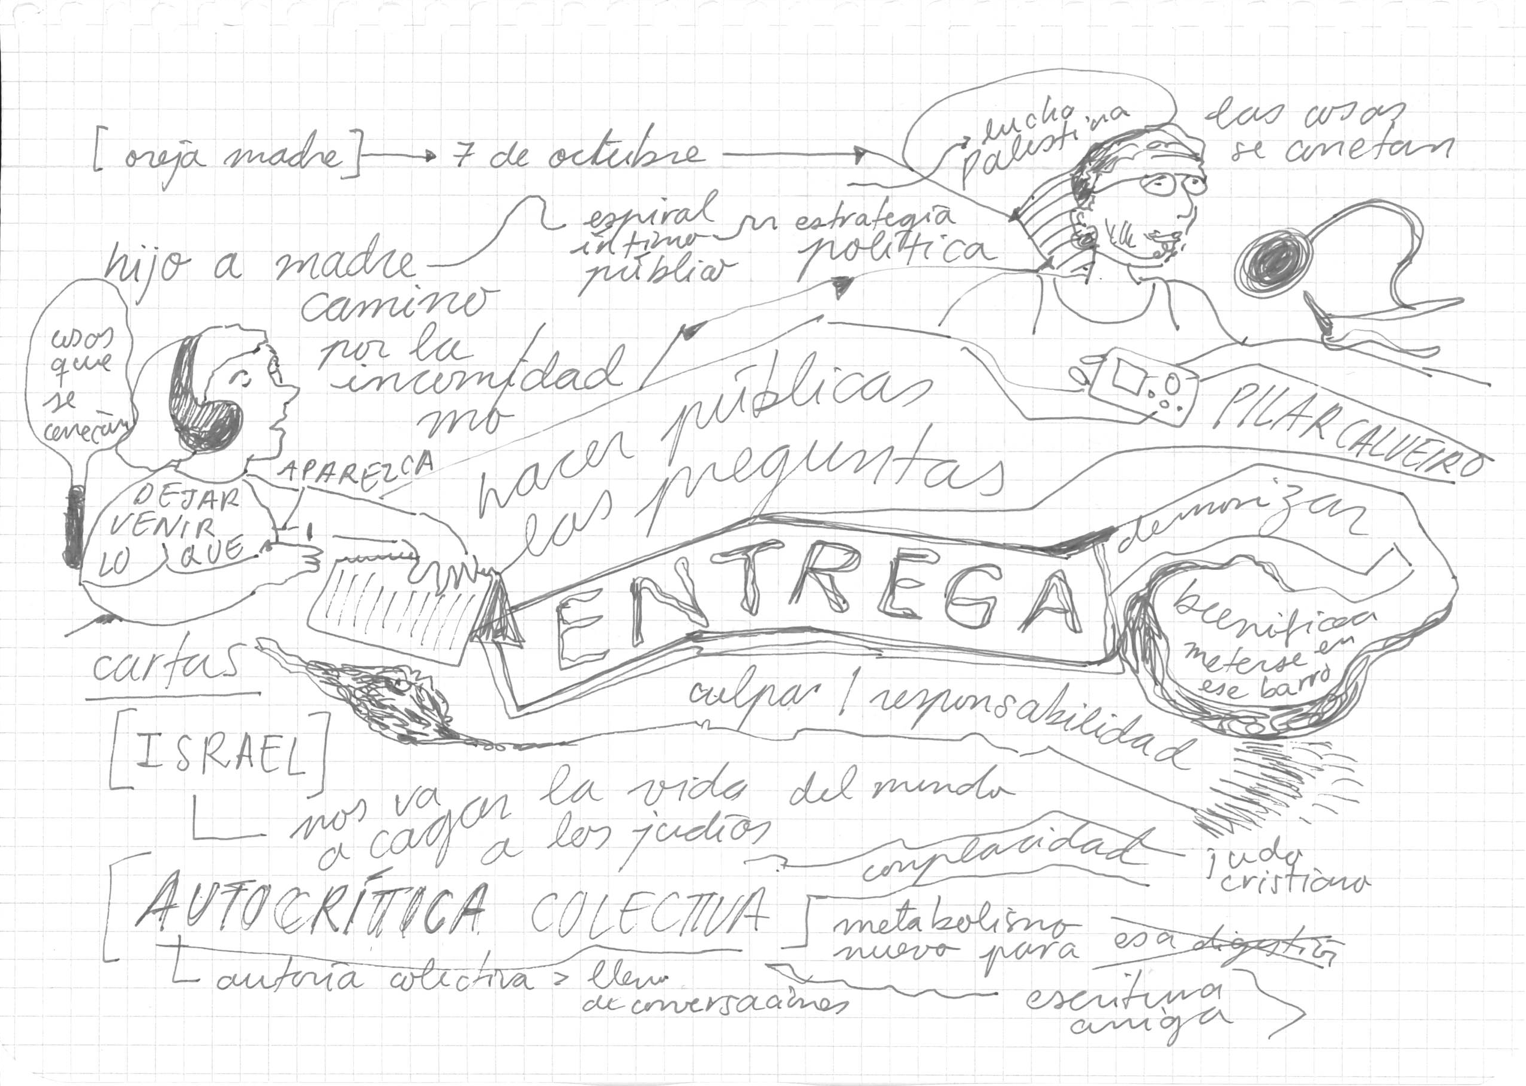 [oreja madre] → 7 de octubre →
lucha
palestina
las cosas
se conetan
hijo a madre
espiral
íntimo
público
estrategia
política
camino
por la
incomodidad
mo
cosas
que
se
conectan
APAREZCA
DEJAR
VENIR
LO QUE
hacer públicas
las preguntas
PILAR CALVEIRO
ENTREGA
demonizar
meterse en
ese barro
cartas
culpa / responsabilidad
[ISRAEL]
nos va
a cagar la vida del mundo
a los judíos
complacidad
judo
cristiano
[AUTOCRÍTICA COLECTIVA
metabolismo
nuevo para esa digestión
autoría colectiva > llena
de conversaciones
escritura
amiga